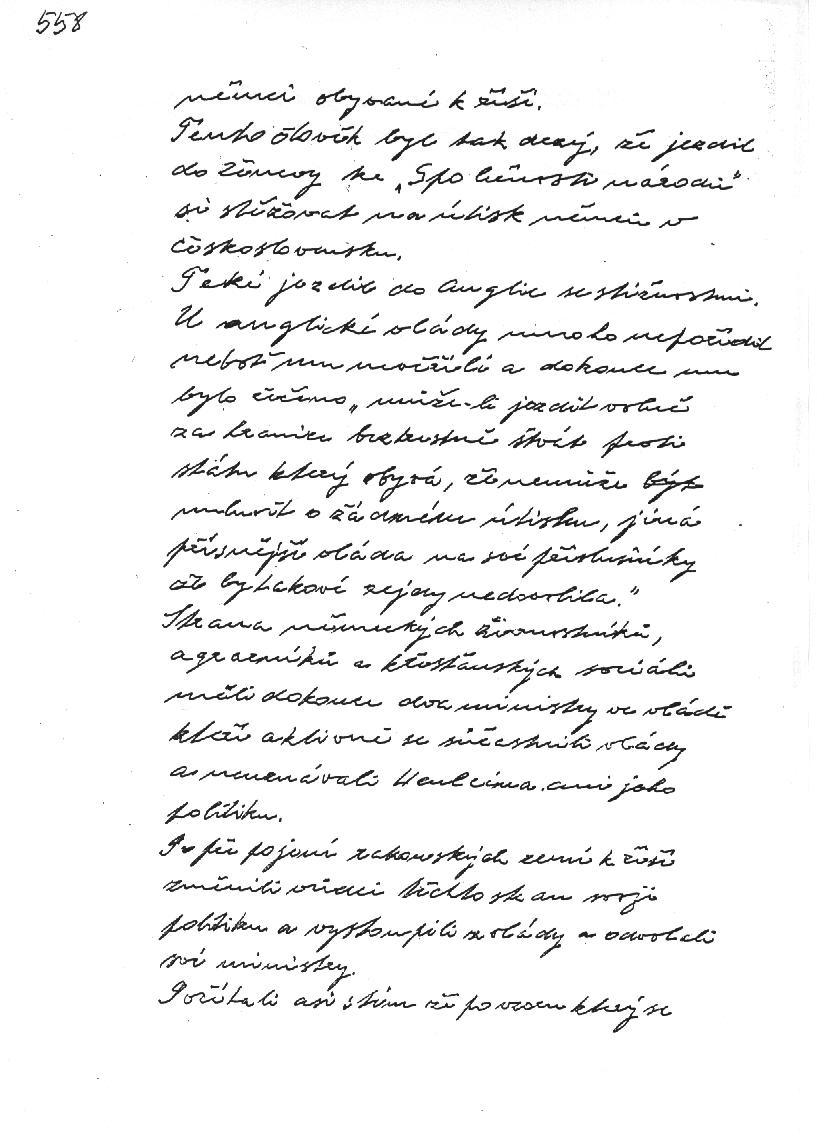 558
němci obývané k říši.
Tento člověk byl tak drzý, že jezdil
do Ženevy ke „Společnosti národů“
si stěžovat na útisk němců v
československu.
Také jezdil do Anglie se stížnostmi.
U anglické vlády mnoho nepořídil
neboť mu nevěřili a dokonce mu
bylo řečeno „může-li jezdit volně
za hranice beztrestně štvát proti
státu který obývá, že nemůže být
mluvit o žádném útisku, jiná
přísnější vláda na své příslušníky
že by takové rejdy nedovolila.“
Strana německých živnostníků,
agrárníků a křesťanských sociálů
měli dokonce dva ministry ve vládě
kteří aktivně se súčastnili vlády
a neuznávali Henleina ani jeho
politiku.
Po při pojení rakouských zemí k říši
změnili vůdci těchto stran svoji
politiku a vystoupili z vlády a odvolali
své ministry.
Počítali asi s tím že po vzoru který se